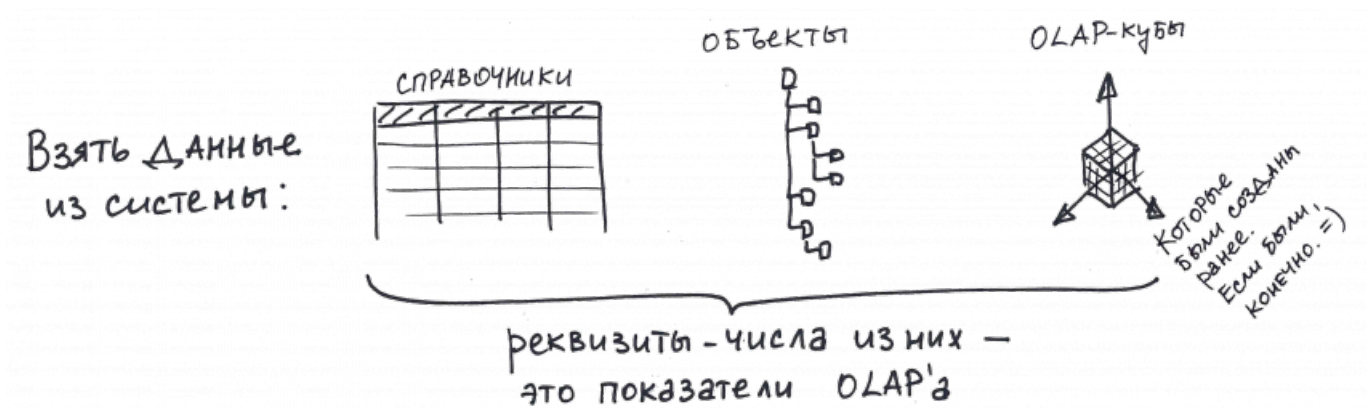 Взять данные
из системы:
СПРАВОЧНИКИ
ОБЪЕКТЫ
OLAP-кубы
Которые
были созданы
ранее.
Если были,
конечно. =)
реквизиты-числа из них —
это показатели OLAP'а